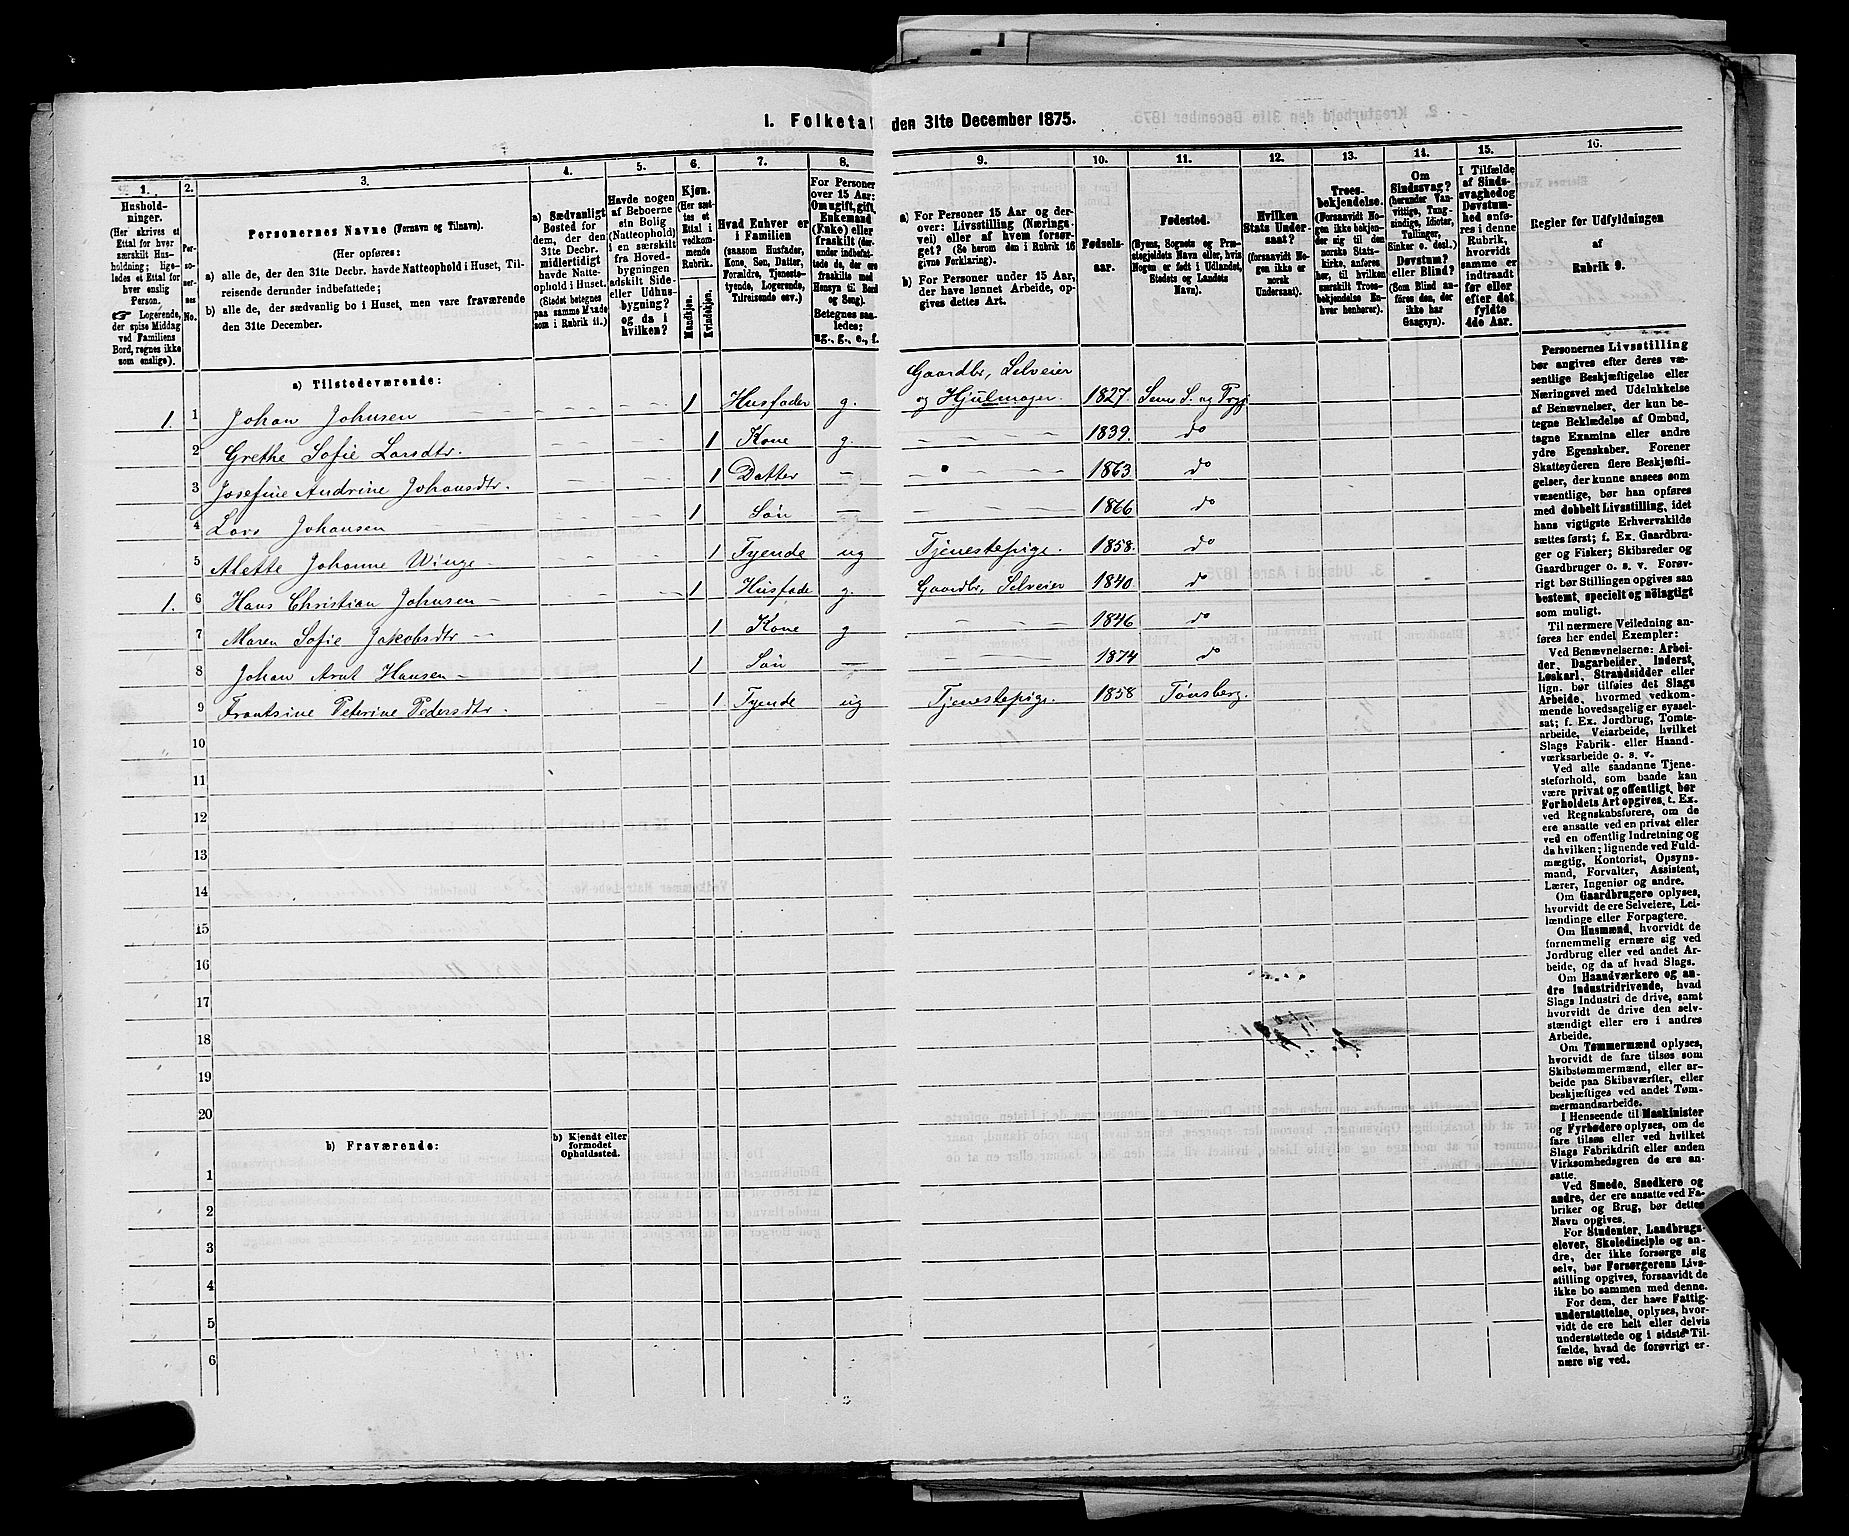 I. Folketal den 31te December 1875.
1.
Hushold-
ninger.
(Her skrives et
Ettal for hver
særskilt Hus-
holdning; lige-
ledes et Ettal for
hver enslig
Person.
☞ Logerende,
der spise Middag
ved Familiens
Bord, regnes ikke
som enslige).
2.
Per-
so-
ner-
nes
No.
3.
Personernes Navne (Fornavn og Tilnavn).
(Her opføres:
a) alle de, der den 31te Decbr. havde Natteophold i Huset, Til-
reisende derunder indbefattede;
b) alle de, der sædvanlig bo i Huset, men vare fraværende
den 31te December.
4.
a) Sædvanligt
Bosted for
dem, der den
31te Decbr.
midlertidigt
havde Natte-
ophold i Huset.
(Stedet betegnes
paa samme Maade
som i Rubrik 11.)
5.
Havde nogen
af Beboerne
sin Bolig
(Natteophold)
i en særskilt
fra Hoved-
bygningen
adskilt Side-
eller Udhus-
bygning?
og da i
hvilken?
6.
Kjøn.
(Her sæt-
tes et
Ettal i
vedkom-
mende
Rubrik.
Mandkjøn.
Kvindekjøn.
7.
Hvad Enhver er
i Familien
(saasom Husfader,
Kone, Søn, Datter,
Forældre, Tjeneste-
tyende, Logerende,
Tilreisende osv.)
8.
For Personer
over 15 Aar:
Om ugift, gift,
Enkemand
(Enke) eller
fraskilt (der-
under indbefat-
tede de, der ere
fraskilte med
Hensyn til Bord
og Seng).
Betegnes saa-
ledes:
ug., g., e., f.
9.
a) For Personer 15 Aar og der-
over: Livsstilling (Nærings-
vei) eller af hvem forsør-
get? (Se herom den i Rubrik 16
givne Forklaring).
b) For Personer under 15 Aar,
der have lønnet Arbeide, op-
gives dettes Art.
10.
Fødsels-
aar.
11.
Fødested.
(Byens, Sognets og Præ-
stegjeldets Navn eller, hvis
Nogen er født i Udlandet,
Stedets og Landets
Navn).
12.
Hvilken
Stats Under-
saat?
(forsaavidt No-
gen ikke er
norsk
Undersaat).
13.
Troes-
bekjendelse.
(Forsaavidt No-
gen ikke bekjen-
der sig til den
norske Stats-
kirke, anføres
her, til hvilken
særskilt Troes-
bekjendelse En-
hver henhører).
14.
Om
Sindssvag?
(herunder Van-
vittige, Tung-
sindige, Idioter,
Tullinger,
Sinker o. desl.)
Døvstum?
eller Blind?
(Som Blind an-
føres den, der
ikke har
Gangsyn).
15.
I Tilfælde
af Sinds-
svaghed og
Døvstum-
hed anfø-
res i denne
Rubrik,
hvorvidt
samme er
indtraadt
før eller
efter det
fyldte
4de Aar.
16.
Regler for Udfyldningen
af
Rubrik 9.
a) Tilstedeværende:
1. 1 Johan Johnsen 1 Husfader g. Gaardbr, Selveier og Hjulmager. 1827.
2 Grethe Sofie Larsdtr. 1 Kone g. 1839. do
3 Josefine Andrine Johansdtr. 1 Datter 1863 do
4 Lars Johansen 1 Søn 1866 do
5 Alette Johanne Winge 1 Tyende ug Tjenestepige. 1858. do
1. 6 Hans Christian Johnsen 1 Husfade g. Gaardbr, Selveier 1840 do
7 Maren Sofie Jakobsdtr 1 Kone g 1846 do
8 Johan Arnt Hansen 1 Søn 1874 do
9 Frantsine Peterine Pedersdtr. 1 Tyende ug Tjenestepige. 1858 Tønsberg.
10
11
12
13
14
15
16
17
18
19
20
b) Fraværende:
b) Kjendt eller
formodet
Opholdssted.
1
2
3
4
5
6
Personernes Livsstilling
bør angives efter deres væ-
sentlige Beskjæftigelse eller
Næringsvei med Udelukkelse
af Benævnelser, der kun be-
tegne Beklædelse af Ombud,
tagne Examina eller andre
ydre Egenskaber. Forener
Skatteyderen flere Beskjæfti-
gelser, der kunne ansees som
væsentlige, bør han opføres
med dobbelt Livsstilling, idet
hans vigtigste Erhvervskilde
sættes først; f. Ex. Gaardbru-
ger og Fisker; Skibsreder og
Gaardbruger o. s. v. Forøv-
rigt bør Stillingen opgives saa
bestemt, specielt og nöiagtigt
som muligt.
Til nærmere Veiledning an-
føres her endel Exempler:
Ved Benævnelserne: Arbei-
der, Dagarbeider, Inderst,
Løskarl, Strandsidder eller
lign. bør tilføies det Slags
Arbeide, hvormed vedkom-
mende hovedsagelig er syssel-
sat; f. Ex. Jordbrug, Tomte-
arbeide, Veiarbeide, hvilket
Slags Fabrik- eller Haand-
værksarbeide o. s. v.
Ved alle saadanne Tjene-
steforhold, som baade kan
være privat og offentligt, bør
Forholdets Art opgives, t. Ex.
ved Regnskabsførere, om de
ere ansatte ved en privat eller
ved en offentlig Indretning og
da hvilken; lignende ved Fuld-
mægtig, Kontorist, Opsyns-
mand, Forvalter, Assistent,
Lærer, Ingeniør og andre.
Om Gaardbrugere oplyses,
hvorvidt de ere Selveiere, Lei-
lændinge eller Forpagtere.
Om Husmænd, hvorvidt de
fornemmelig ernære sig ved
Jordbrug eller ved andet Ar-
beide, og da af hvad Slags.
Om Haandværkere og an-
dre Industridrivende, hvad
Slags Industri de drive, samt
hvorvidt de drive den selv-
stændigt eller ere i andres
Arbeide.
Om Tømmermænd oplyses,
hvorvidt de fare tilsøs som
Skibstømmermænd, eller ar-
beide paa Skibsværfter, eller
beskjæftiges ved andet Tøm-
mermandsarbeide.
I Henseende til Maskinister
og Fyrbødere oplyses, om de
fare tilsøs eller ved hvilket
Slags Fabrikdrift eller anden
Virksomhedsgren de ere an-
satte.
Ved Smede, Snedkere og
andre, der ere ansatte ved Fa-
briker og Brug, bør dettes
Navn opgives.
For Studenter, Landbrugs-
elever, Skoledisciple og an-
dre, der ikke forsørge sig
selv, bør Forsørgerens Livs-
stilling opgives, forsaavidt de
ikke bo sammen med denne.
For dem, der have Fattig-
understøttelse, oplyses, hvor-
vidt de ere helt eller delvis
understøttede og i sidste Til-
fælde, hvad de forøvrigt er-
nære sig ved.